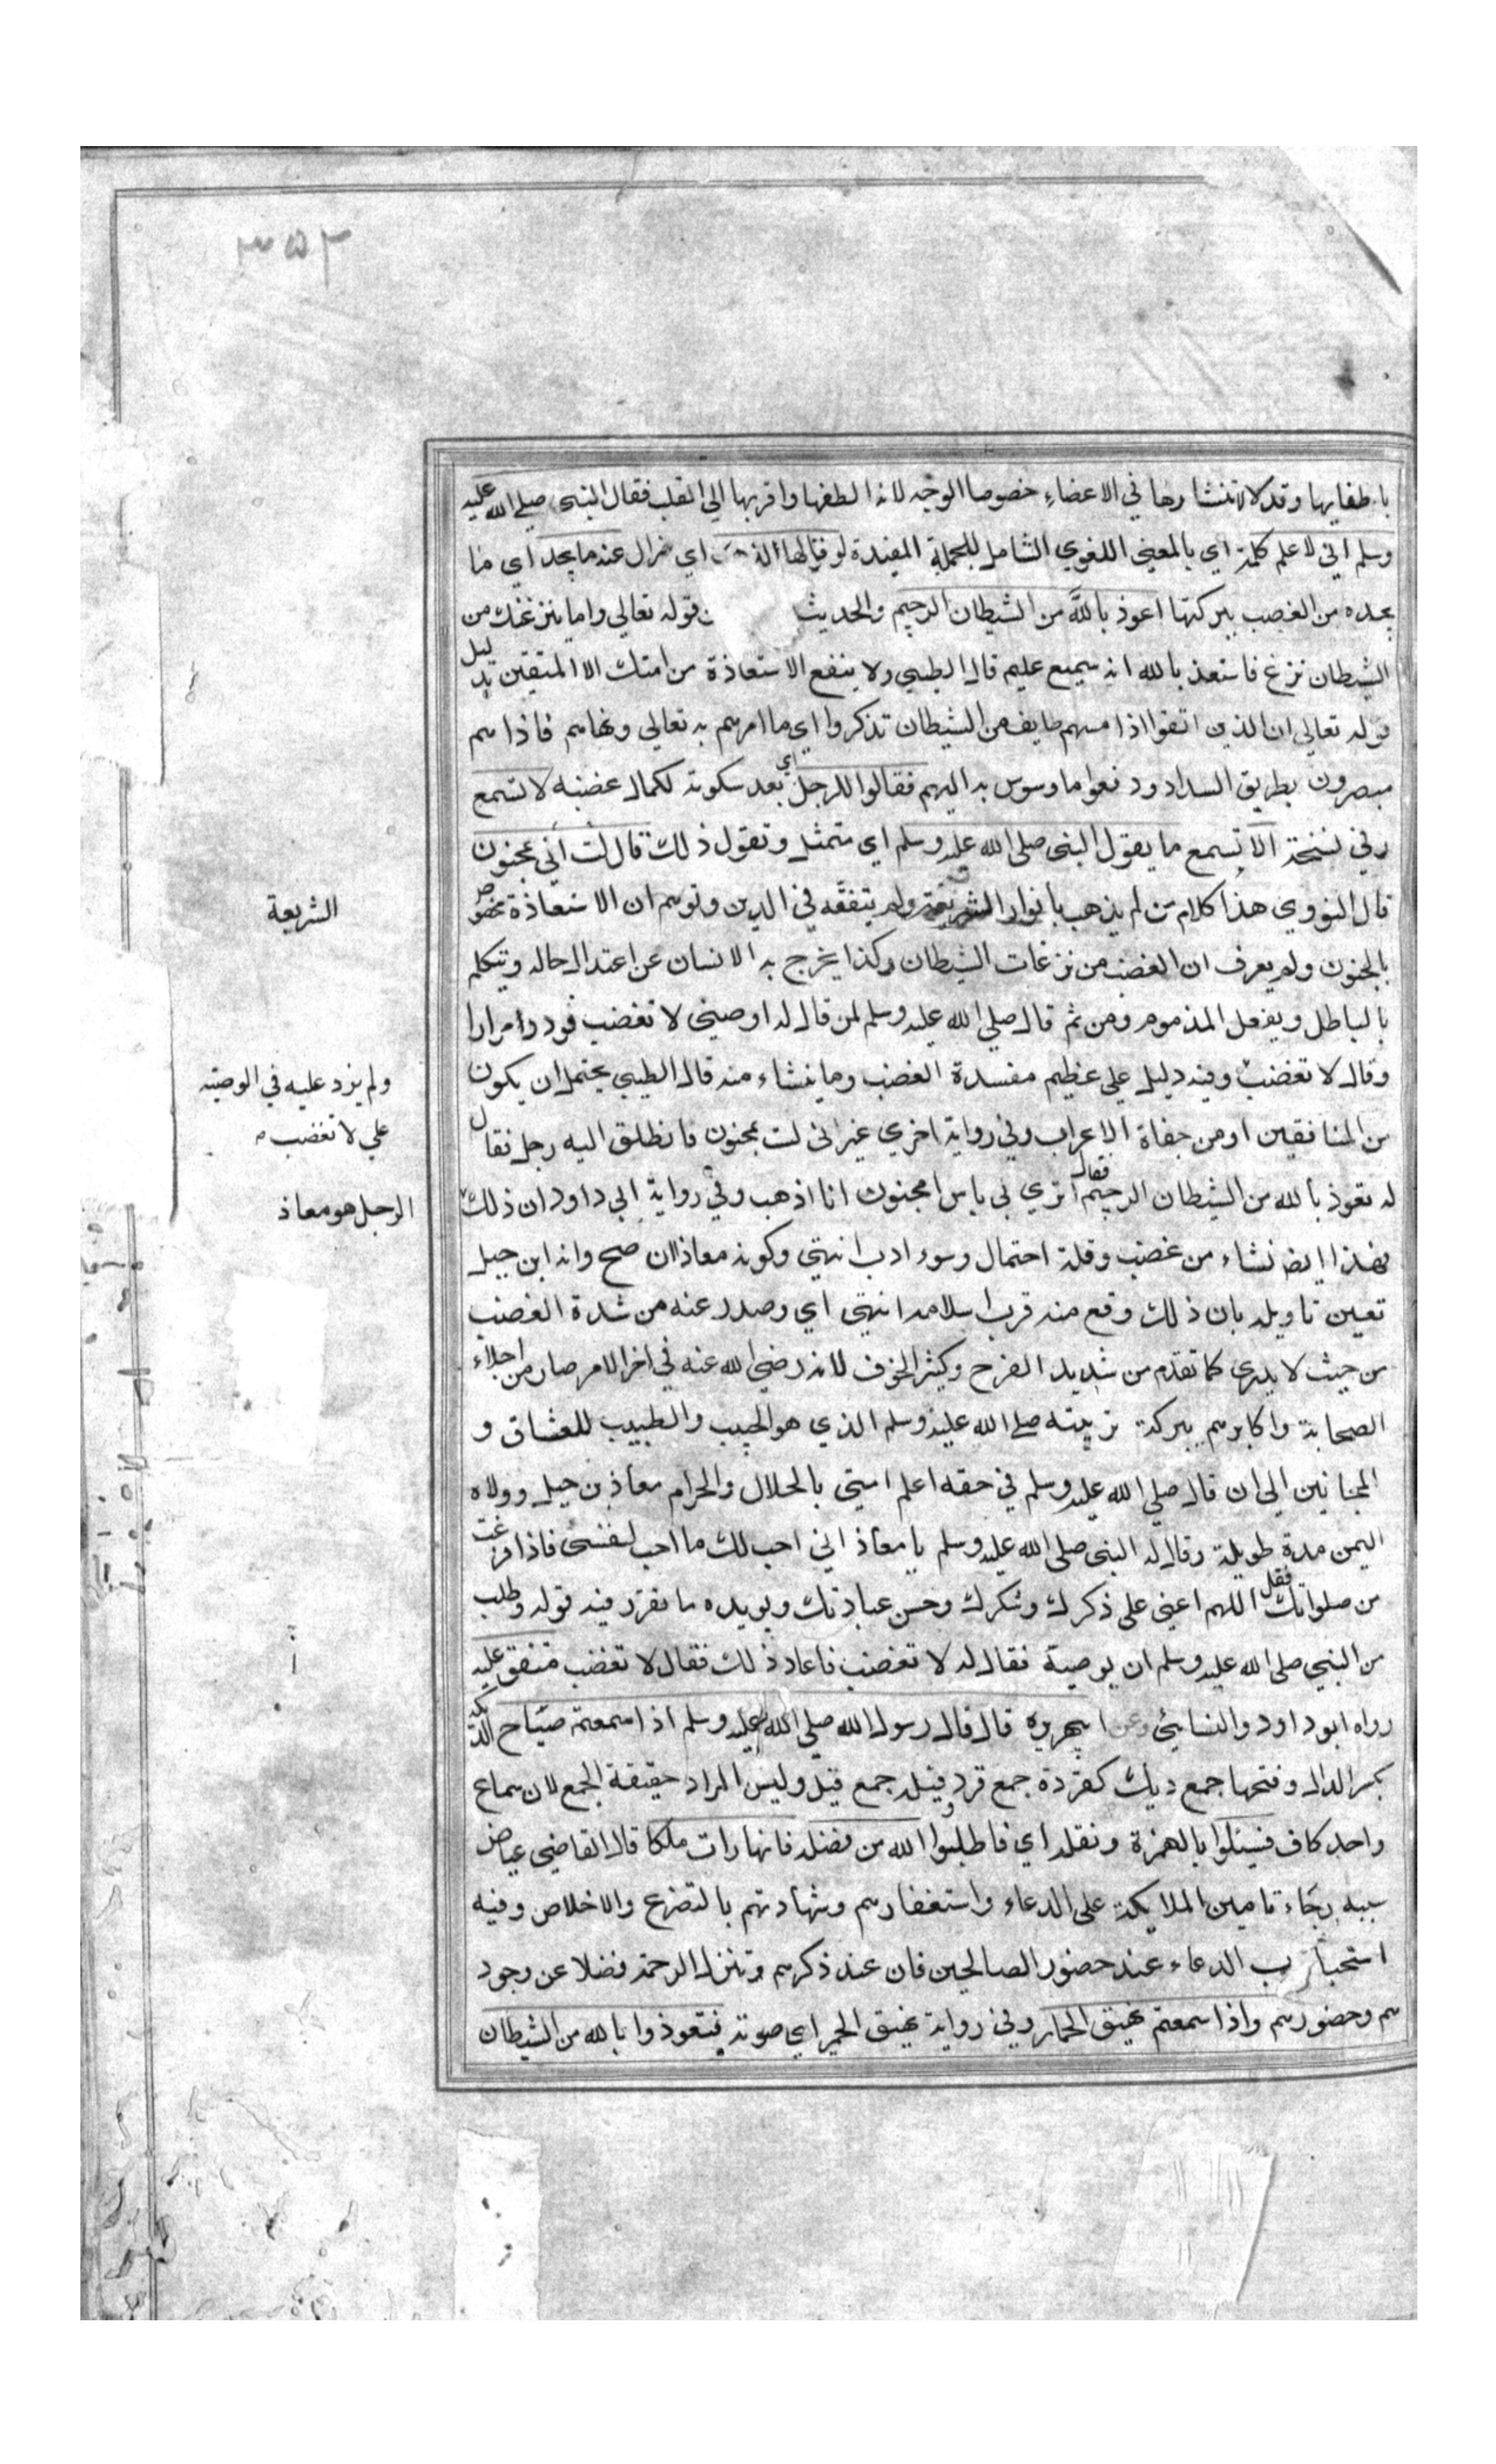 ٣٥٣
باطفايها وقد لا تنتشارها في الاعضاء خصوصا الوجه لانه الطفها واقربها الى القلب فقال النبي صلي الله عليه
وسلم اني لاعلم كلمة اي بالمعنى اللغوي الشامل للجملة المفيدة لو قالها اي لزال عنه ما يجد اي ما
يجده من الغضب ببركتها اعوذ بالله من الشيطان الرجيم والحديث قوله تعالي واما ينزغنك من
الشيطان نزغ فاستعذ بالله انه سميع عليم قال الطيبي ولا ينفع الاستعاذة من امتك الا المتقين بدليل
قوله تعالى ان الذين اتقوا اذا مسهم طايف من الشيطان تذكروا اي ما امرهم به تعالي ونهاهم فاذا هم
مبصرون بطريق السداد ودفعوا ما وسوس به اليهم فقالوا للرجل اي بعد سكوته لكمال غضبه لا تسمع
وفي نسخة الا تسمع ما يقول النبي صلى الله عليه وسلم اي متمثل وتقول ذلك قال لست اني بمجنون
قال النووي هذا كلام من لم يذهب بانوار الشريعة ولم يتفقه في الدين وتوهم ان الاستعاذة مخصوص
الشريعة
بالجنون ولم يعرف ان الغضب من نزغات الشيطان وكذا يخرج به الانسان عن اعتدال حاله ويتكلم
بالباطل ويفعل المذموم ومن ثم قال صلي الله عليه وسلم لمن قال له اوصني لا تغضب فردد مرارا
وقال لا تغضب وفيه دليل علي عظيم مفسدة الغضب وما ينشاء منه قال الطيبي يحتمل ان يكون
ولم يزد عليه في الوصية
علي لا تغضب
من المنافقين او من جفاة الاعراب وفي رواية اخري غير اني لست بمجنون فانطلق اليه رجل فقال
له تعوذ بالله من الشيطان الرجيم فقال اتري بي باس امجنون انا اذهب وفي رواية ابي داود ان ذلك
الرجل هو معاذ
فهذا ايضا نشاء من غضب وقلة احتمال وسوء ادب انتهي وكونه معاذا ان صح وانه ابن جبل
تعين تاويله بان ذلك وقع منه قرب اسلامه انتهي اي وصدر عنه من شدة الغضب
من حيث لا يدري كما تقدم من شديد الفرح وكثير الخوف لانه رضي الله عنه في اخر الامر صار من اجلاء
الصحابة واكابرهم ببركة تربيته صلي الله عليه وسلم الذي هو الحبيب والطبيب للعشاق و
المجانين الى ان قال صلي الله عليه وسلم في حقه اعلم امتي بالحلال والحرام معاذ بن جبل وولاه
اليمن مدة طويلة وقال له النبي صلى الله عليه وسلم يا معاذ اني احب لك ما احب لنفسي فاذا فرغت
من صلواتك فقل اللهم اعني على ذكرك وشكرك وحسن عبادتك ويويده ما تقرر فيه قوله وطلب
من النبي صلى الله عليه وسلم ان يوصية فقال له لا تغضب فاعاد ذلك فقال لا تغضب متفق عليه
رواه ابو داود والنسائي وعن ابي هريرة قال قال رسول الله صلي الله عليه وسلم اذا سمعتم صياح الديكة
بكسر الدال وفتحها جمع ديك كقردة جمع قرد وفيلة جمع فيل وليس المراد حقيقة الجمع لان سماع
واحد كاف فسئلوا بالهمزة ونقله اي فاطلبوا الله من فضله فانها رات ملكا قال القاضي عياض
سببه رجاء تامين الملايكة على الدعاء واستغفارهم وشهادتهم بالتضرع والاخلاص وفيه
استحباب الدعاء عند حضور الصالحين فان عند ذكرهم تنزل الرحمة فضلا عن وجود
هم وحضورهم واذا سمعتم نهيق الحمار وفي رواية نهيق الحمير اي صوته فتعوذوا بالله من الشيطان